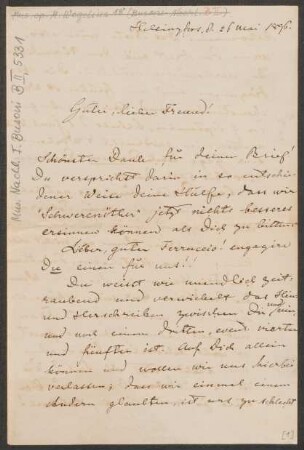 Mus. Nachl. F. Busoni B II, 5331
Helsingfors, d. 26 Mai 1896.
Guter, lieber Freund!
Schönsten Dank für deinen Brief!
Du versprichst darin in so entschie-
dener Weise deine Hülfe, dass wir
"Schwerenöther" jetzt nichts besseres
ersinnen können als Dich zu bitten:
Lieber, guter Ferruccio! engagire
Du einen für uns!!
Du weisst wie unendlich zeit-
raubend und verwickelt das Hin
und Herschreiben zwischen Dir und mir
und noch einem Dritten, event. vierten
und fünften ist. Auf Dich allein
können und wollen wir uns hierbei
verlassen; dass wir einmal einem
andern glaubten, ist uns zu schlecht
[1]